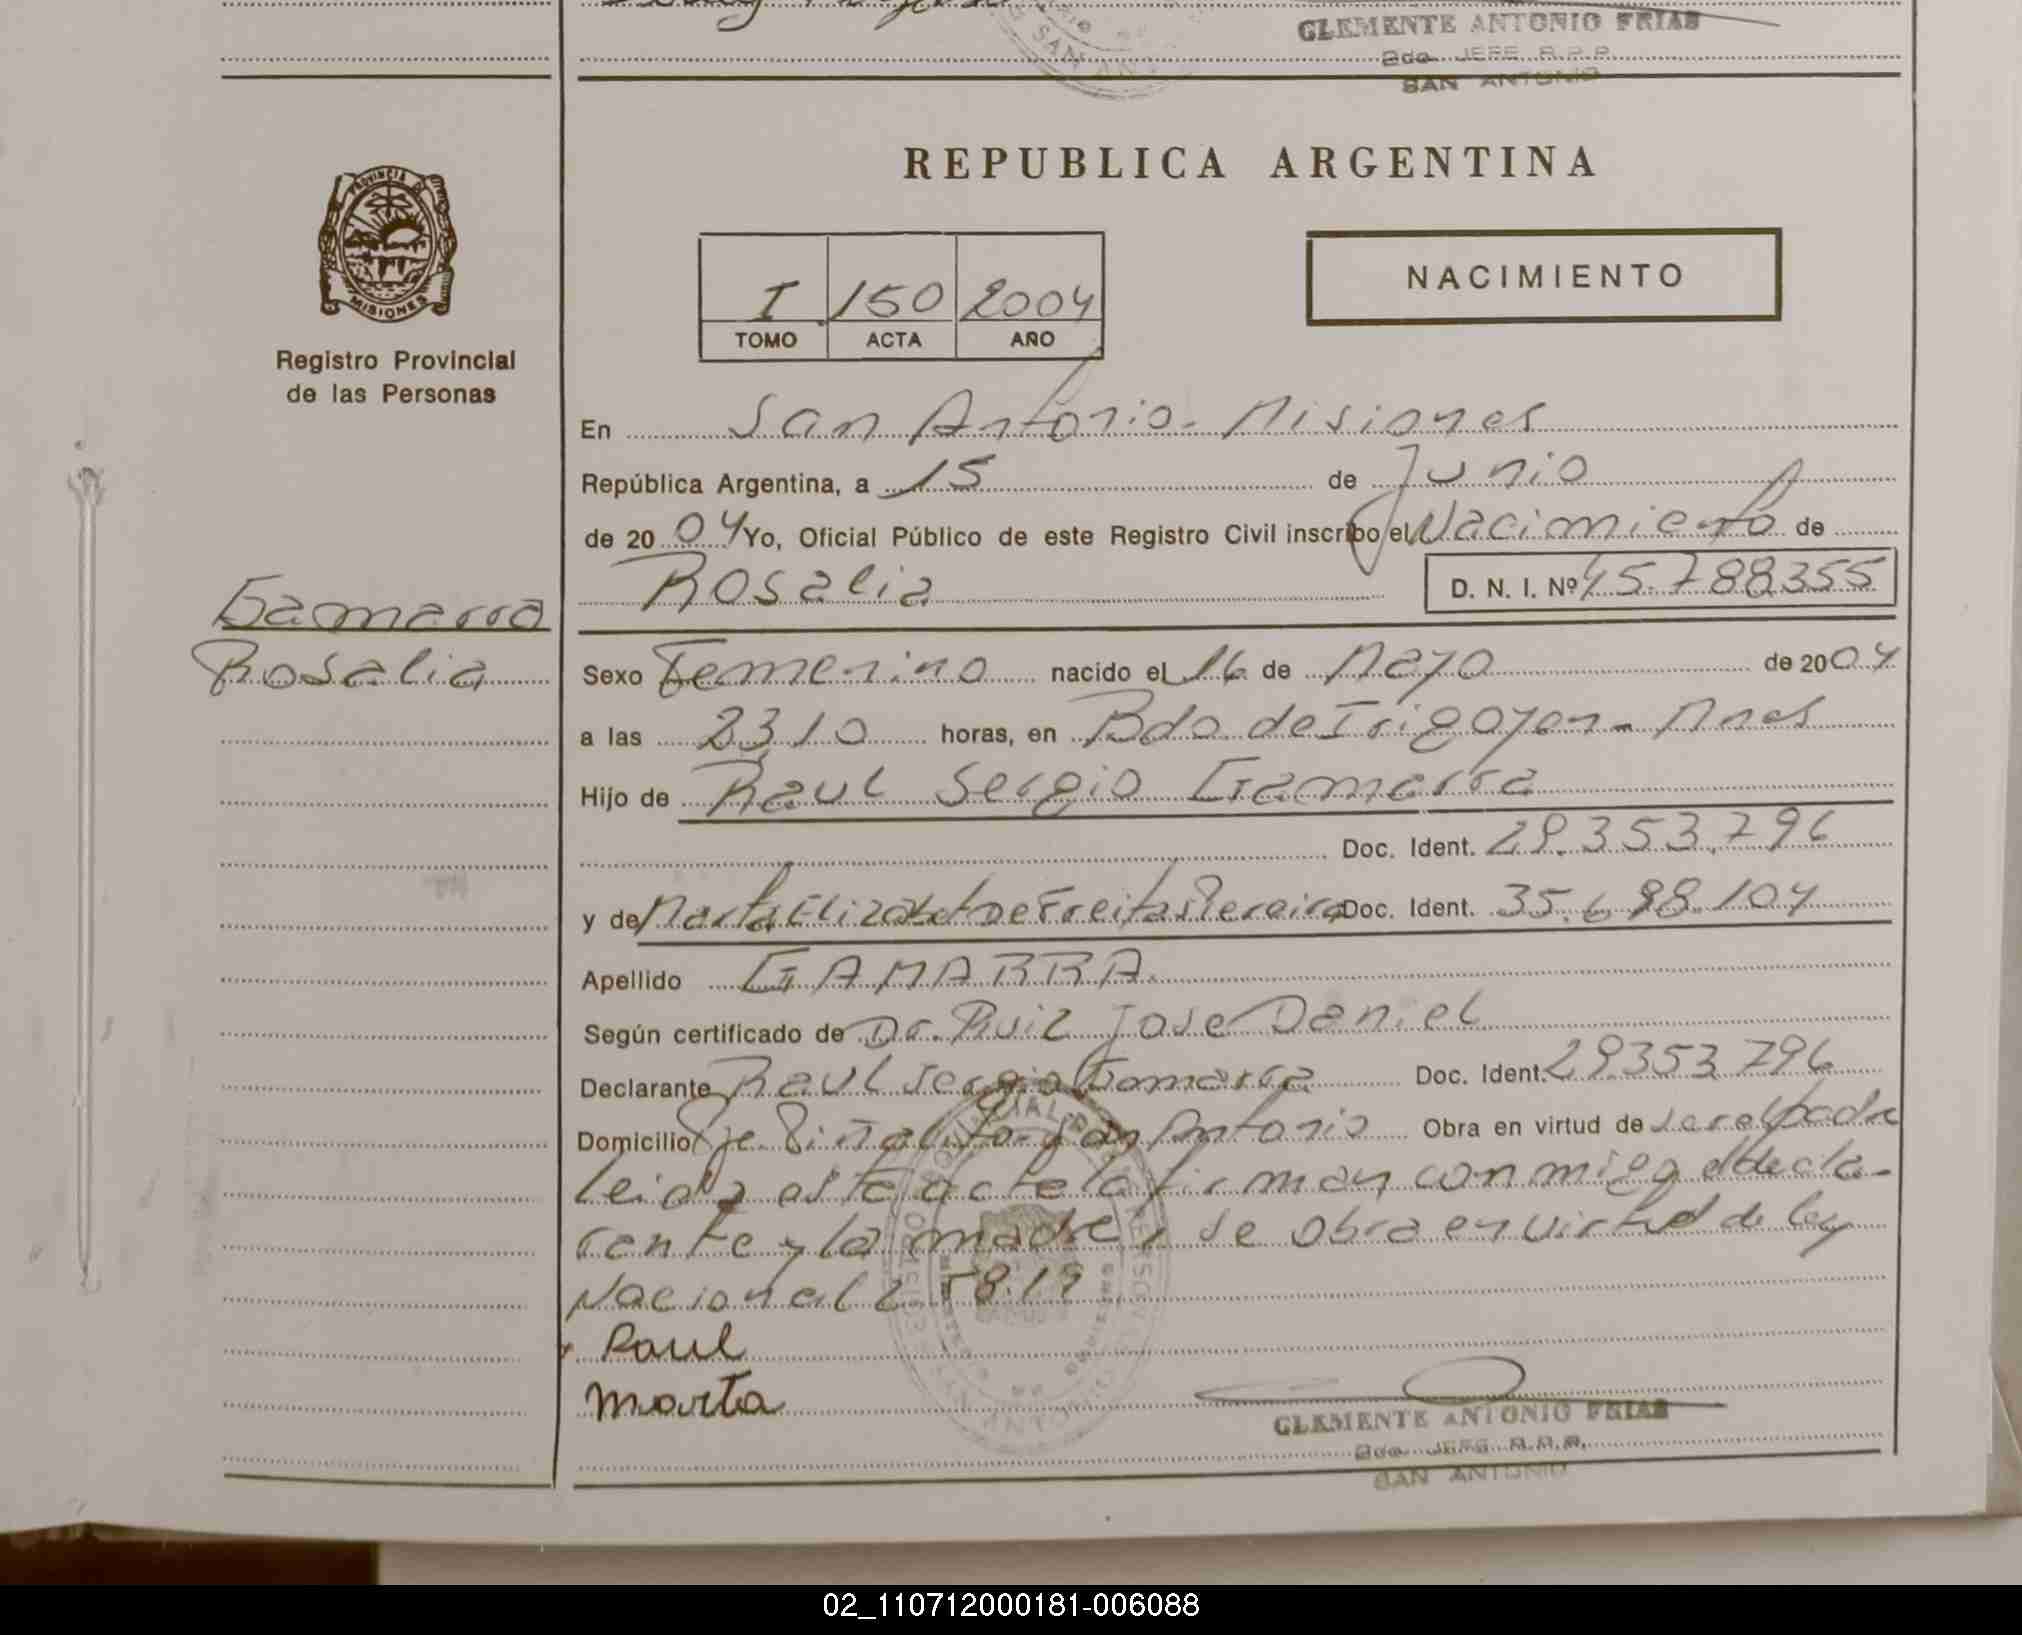 CLEMENTE ANTONIO FRIAS
2do JEFE R.P.P.
SAN ANTONIO
SAN ANT
REPUBLICA ARGENTINA
PROVINCIA DE
MISIONES
Registro Provincial
de las Personas
I 150 2004
TOMO ACTA AÑO
NACIMIENTO
En San Antonio - Misiones
República Argentina, a 15 de Junio
de 2004 Yo, Oficial Público de este Registro Civil inscribo el Nacimiento de
Rosalia D. N. I. Nº 45.788355
Gamarra
Rosalia
Sexo Femenino nacido el 16 de Mayo de 2004
a las 23,10 horas, en Bdo. de Irigoyen - Mnes
Hijo de Raul Sergio Gamarra
Doc. Ident. 29.353.796
y de Marta Elizabet De Freitas Pereira Doc. Ident. 35.698.104
Apellido GAMARRA.
Según certificado de Dr. Ruiz Jose Daniel
Declarante Raul Sergio Gamarra Doc. Ident. 29353796
Domicilio Pje. Piñalito - San Antonio Obra en virtud de ser el padre
leida esta acta la firman conmigo el decla-
rante y la madre, se obra en virtud de ley
Nacional
Raul
Marta
CLEMENTE ANTONIO FRIAS
2do JEFE R.P.P.
SAN ANTONIO
02_110712000181-006088